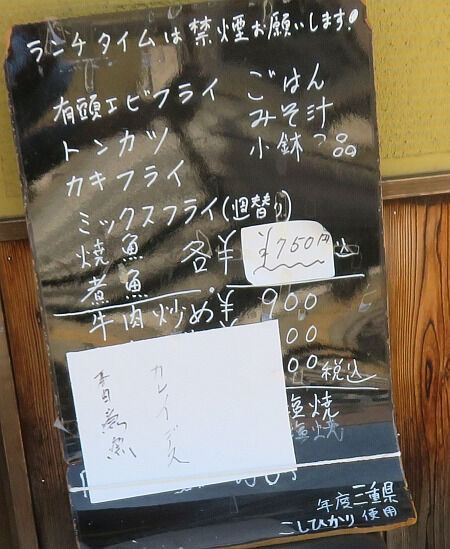 ランチタイムは禁煙お願いします!
有頭エビフライ ごはん
トンカツ みそ汁
カキフライ 小鉢 品
ミックスフライ(週替り)
焼魚 各¥ ¥750円 込
煮魚
牛肉炒め¥900
00
00税込
塩焼
塩焼
カレイ
年度三重県
こしひかり使用